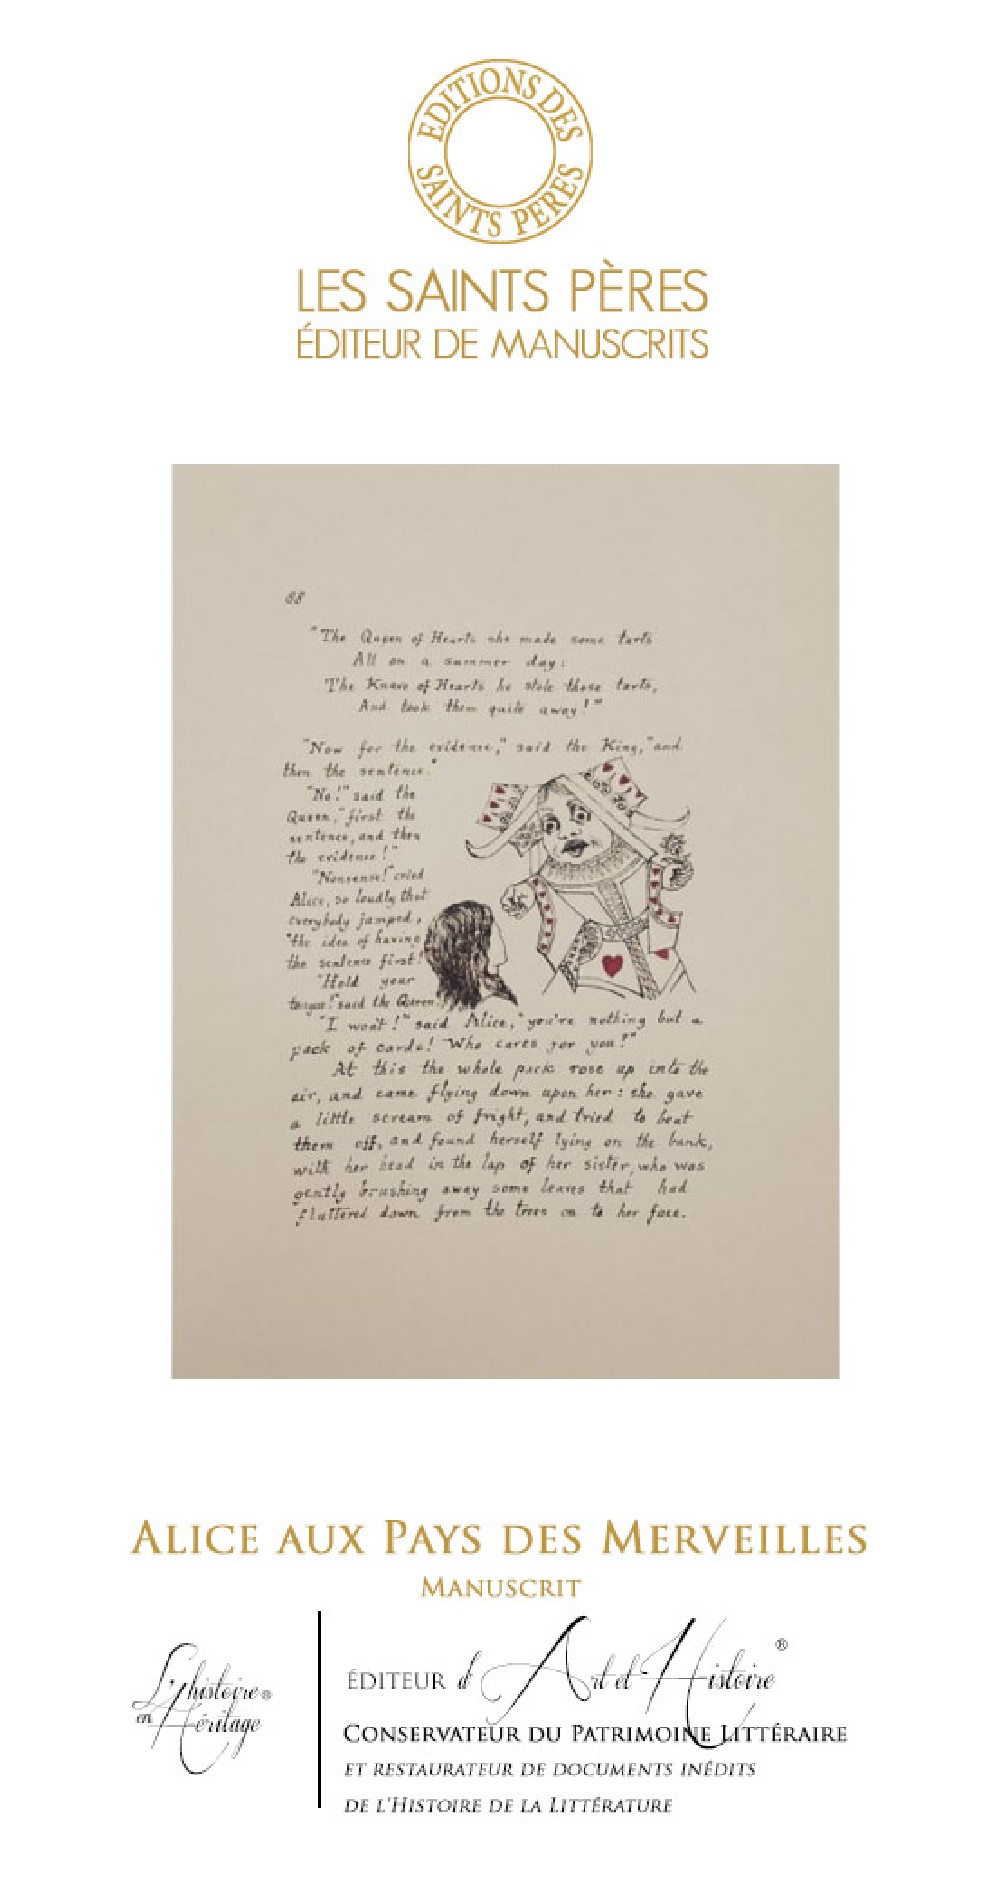 EDITIONS DES
SAINTS PERES
LES SAINTS PÈRES
ÉDITEUR DE MANUSCRITS
88
"The Queen of Hearts she made some tarts
All on a summer day:
The Knave of Hearts he stole those tarts,
And took them quite away!"
"Now for the evidence," said the King, "and
then the sentence."
"No!" said the
Queen, "first the
sentence, and then
the evidence!"
"Nonsense!" cried
Alice, so loudly that
everybody jumped,
"the idea of having
the sentence first!
"Hold your
tongue!" said the Queen.
"I won't!" said Alice, "you're nothing but a
pack of cards! Who cares for you?"
At this the whole pack rose up into the
air, and came flying down upon her: she gave
a little scream of fright, and tried to beat
them off, and found herself lying on the bank,
with her head in the lap of her sister, who was
gently brushing away some leaves that had
fluttered down from the trees on to her face.
ALICE AUX PAYS DES MERVEILLES
MANUSCRIT
L'histoire®
en Héritage
ÉDITEUR d'Art et Histoire®
CONSERVATEUR DU PATRIMOINE LITTÉRAIRE
ET RESTAURATEUR DE DOCUMENTS INÉDITS
DE L'HISTOIRE DE LA LITTÉRATURE